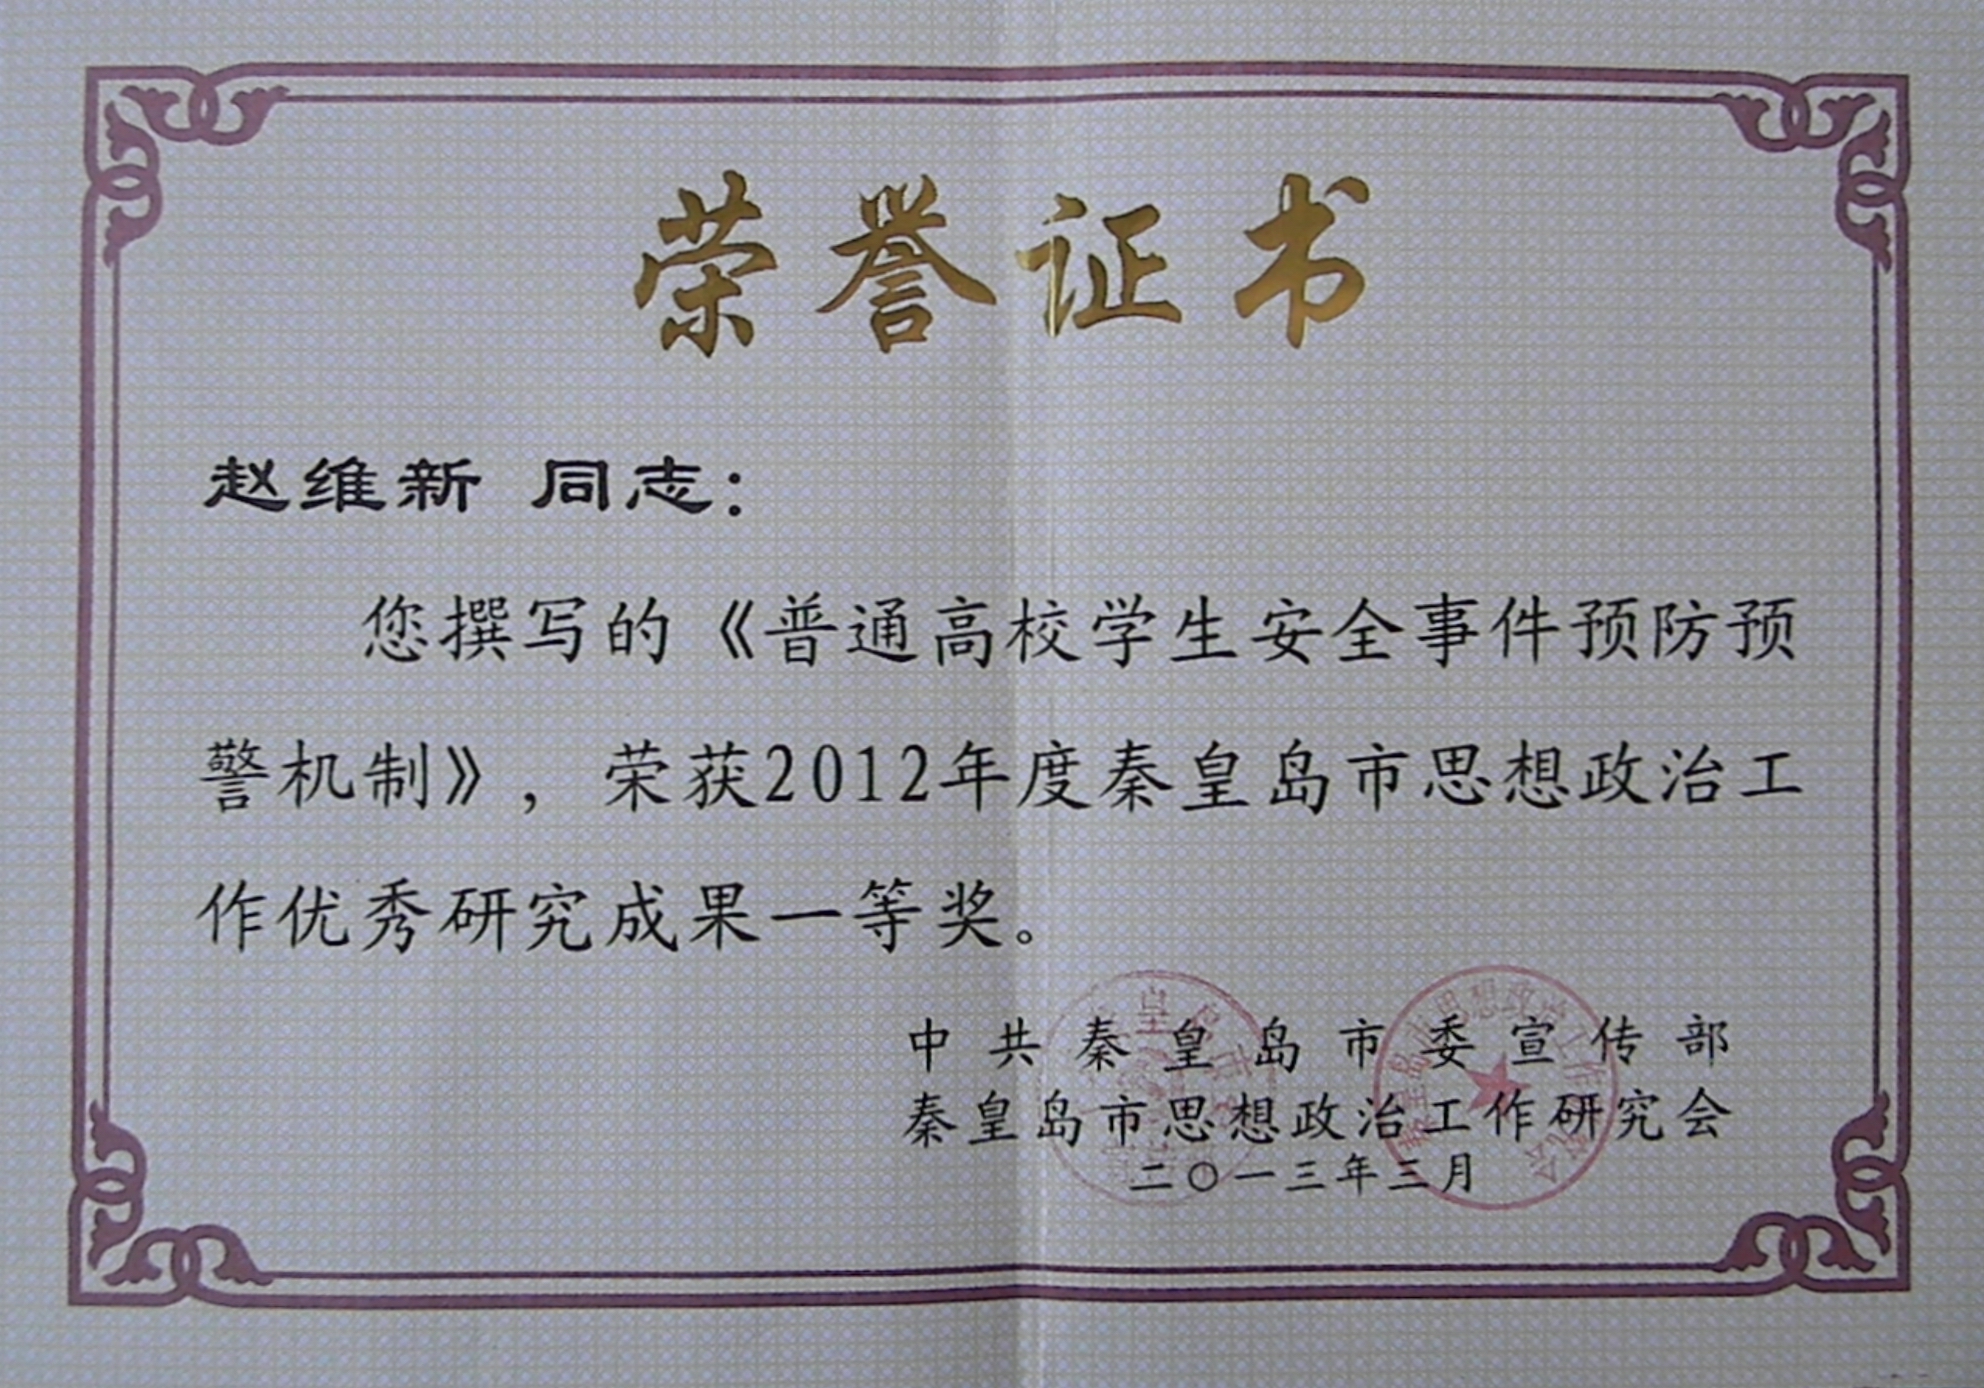 荣誉证书
赵维新 同志：
您撰写的《普通高校学生安全事件预防预
警机制》，荣获2012年度秦皇岛市思想政治工
作优秀研究成果一等奖。
中共秦皇岛市委宣传部
秦皇岛市思想政治工作研究会
二〇一三年三月